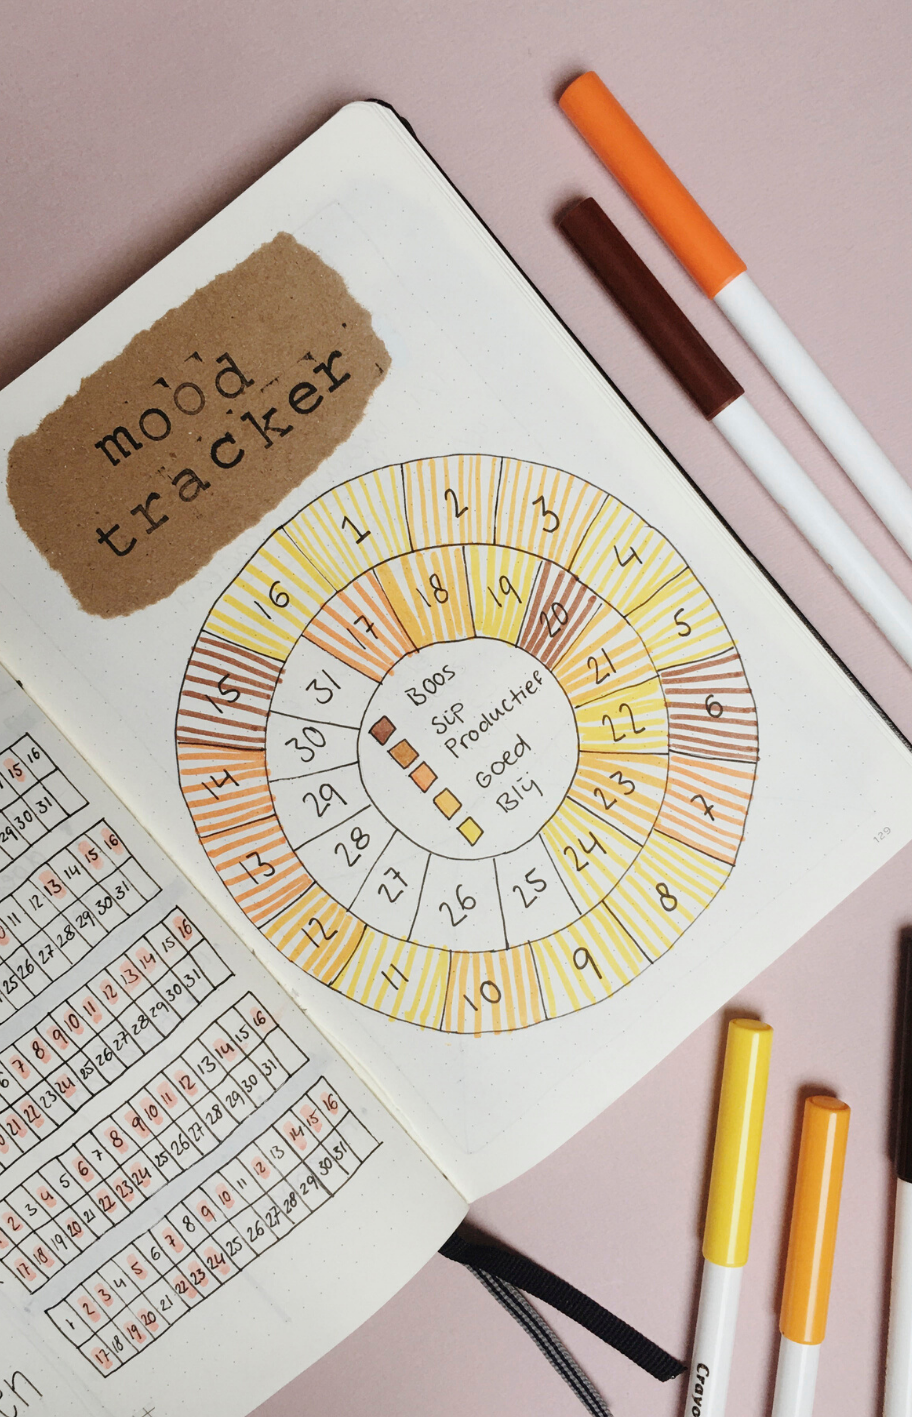 mood
tracker
1 2 3 4 5 6 7 8 9 10 11 12 13 14 15 16
17 18 19 20 21 22 23 24 25 26 27 28 29 30 31
Boos
Sip
Productief
Goed
Blij
129
15 16
29 30 31
11 12 13 14 15 16
25 26 27 28 29 30 31
6 7 8 9 10 11 12 13 14 15 16
21 22 23 24 25 26 27 28 29 30 31
2 3 4 5 6 7 8 9 10 11 12 13 14 15 16
17 18 19 20 21 22 23 24 25 26 27 28 29 30 31
1 2 3 4 5 6 7 8 9 10 11 12 13 14 15 16
17 18 19 20 21 22 23 24 25 26 27 28 29 30 31
en
Crayo